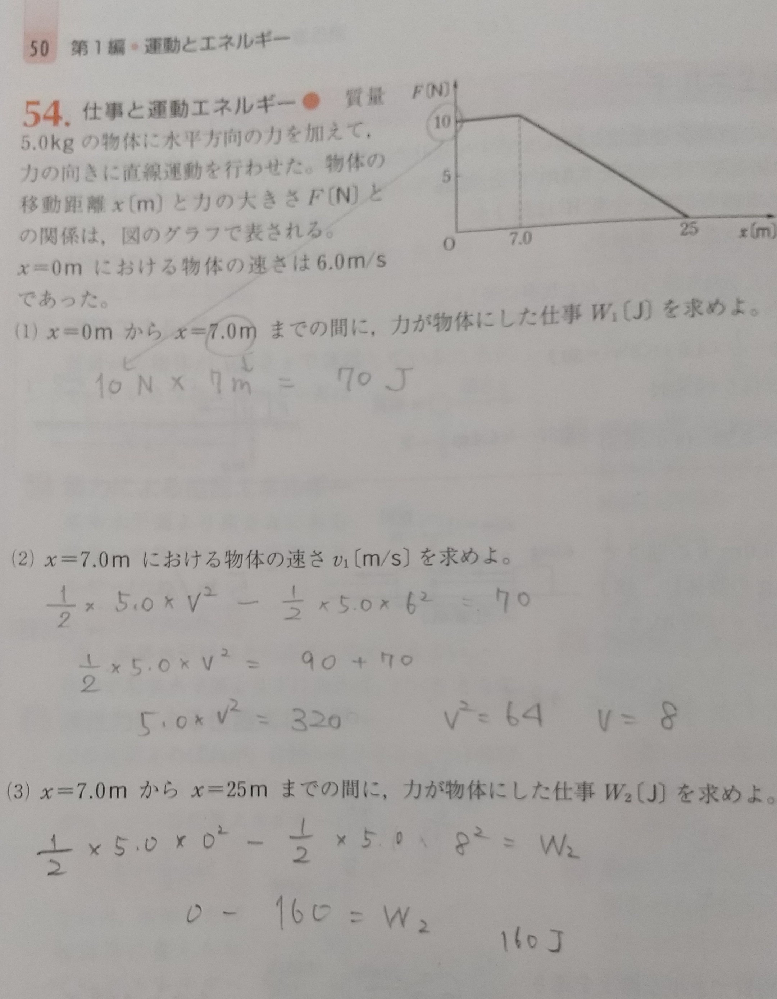 50 第1編●運動とエネルギー
54. 仕事と運動エネルギー● 質量
5.0kgの物体に水平方向の力を加えて，
力の向きに直線運動を行わせた。物体の
移動距離x〔m〕と力の大きさF〔N〕と
の関係は，図のグラフで表される。
x=0m における物体の速さは6.0m/s
であった。
F〔N〕
10
5
O
7.0
25
x〔m〕
(1) x=0m から x=7.0m までの間に，力が物体にした仕事 W₁〔J〕を求めよ。
10 N × 7m = 70 J
(2) x=7.0m における物体の速さ v₁〔m/s〕を求めよ。
1/2 × 5.0 × V² - 1/2 × 5.0 × 6² = 70
1/2 × 5.0 × V² = 90 + 70
5.0 × V² = 320 V² = 64 V = 8
(3) x=7.0m から x=25m までの間に，力が物体にした仕事 W₂〔J〕を求めよ。
1/2 × 5.0 × 0² - 1/2 × 5.0 × 8² = W₂
0 - 160 = W₂ 160J